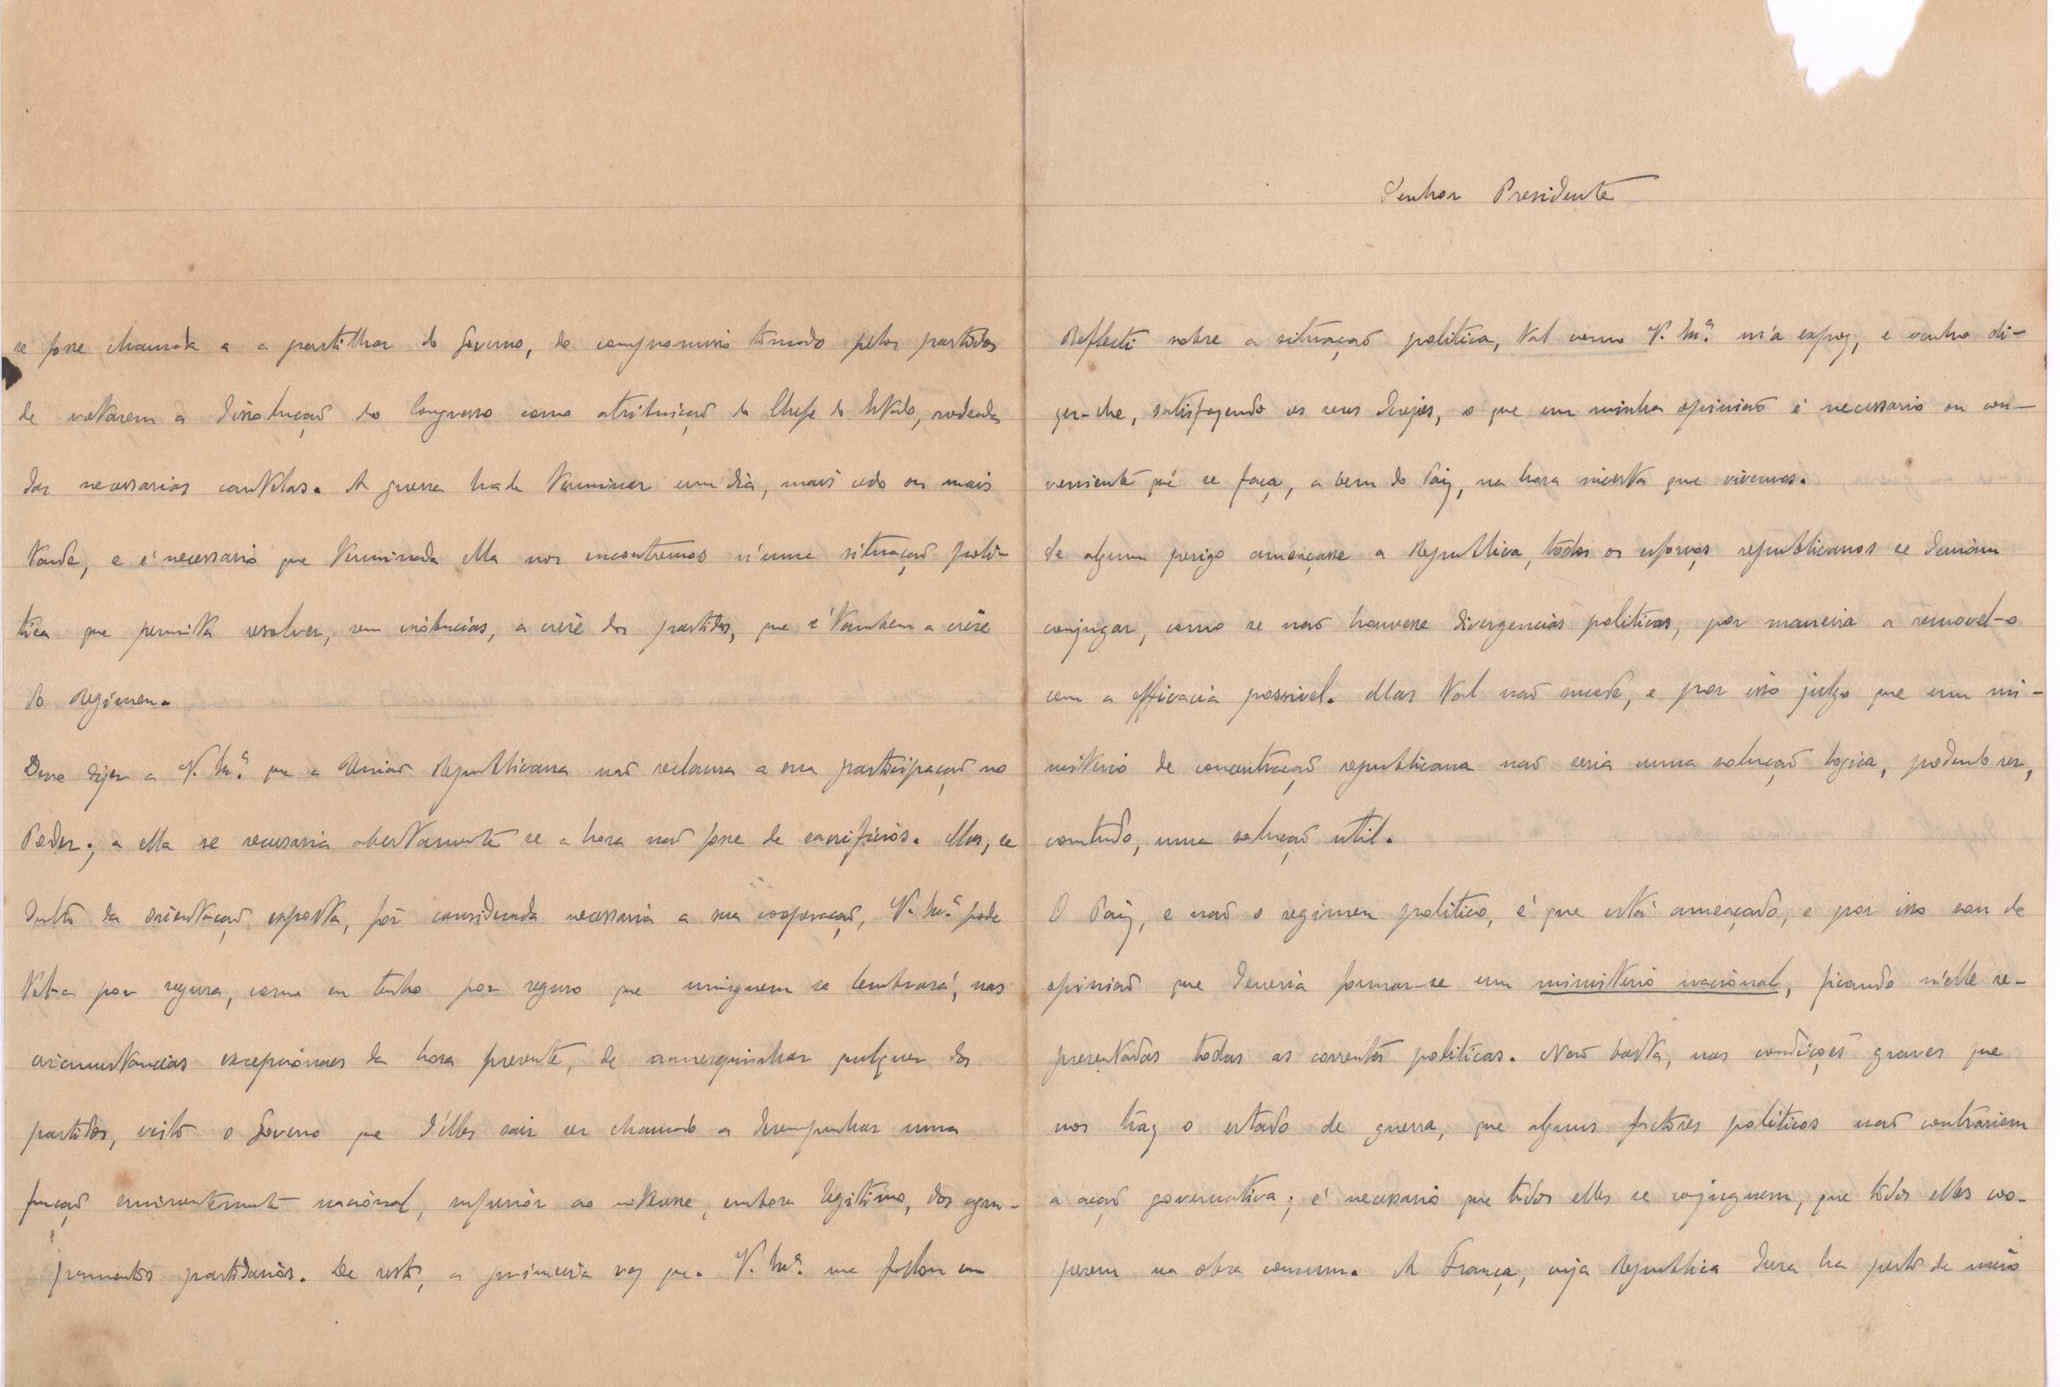 Senhor Presidente
Reflecti sobre a situação politica, tal como V. Exª. m'a expoz, e venho di-
zer-lhe, satisfazendo os seus desejos, o que em minha opinião é necessario ou con-
veniente que se faça, a bem do Paiz, na hora incerta que vivemos.
Se algum perigo ameaçasse a Republica, todos os esforços republicanos se deviam
conjugar, como se não houvesse divergencias politicas, por maneira a removel-o
com a efficacia possivel. Mas tal não succede, e por isso julgo que um mi-
nisterio de concentração republicana não seria uma solução logica, podendo ser,
comtudo, uma solução util.
O Paiz, e não o regimen politico, é que está ameaçado, e por isso sou de
opinião que deveria formar-se um ministerio nacional, ficando n'elle re-
presentadas todas as correntes politicas. Não basta, nas condições graves que
nos traz o estado de guerra, que alguns factores politicos não contrariem
a acção governativa; é necessario que todos elles se conjuguem, que todos elles coo-
perem na obra commum. A França, cuja Republica dura ha perto de meio
se fosse chamada a partilhar do Governo, do compromisso tomado pelos partidos
de votarem a dissolução do Congresso como atribuição do Chefe do Estado, rodeada
das necessarias cautelas. A guerra hade terminar um dia, mais cedo ou mais
tarde, e é necessario que terminada ella nos encontremos n'uma situação poli-
tica que permitta resolver, sem violencias, a crise dos partidos, que é tambem a crise
do Regimen.
Devo dizer a V. Exª. que a União Republicana não reclama a sua participação no
Poder; a ella se recusaria abertamente se a hora não fosse de sacrificios. Mas, se
dentro da orientação exposta, fôr considerada necessaria a sua cooperação, V. Exª. pode
tel-a por segura, como eu tenho por seguro que ninguem se lembrará, nas
circumstancias excepcionaes da hora presente, de amesquinhar qualquer dos
partidos, visto o Governo que d'elles sair ser chamado a desempenhar uma
funcção eminentemente nacional, superior ao interesse, embora legitimo, dos agru-
pamentos partidarios. De resto, a primeira vez que V. Exª. me fallou em